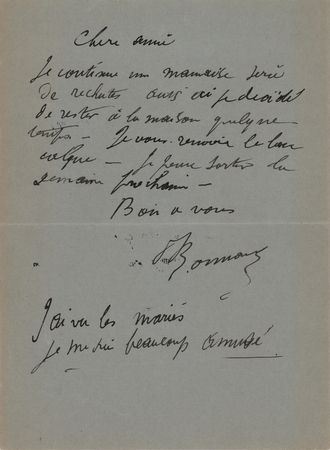 Chere amie
Je continue une mauvaise serie
de rechutes aussi ai je decidé
de rester à la maison quelque
temps – Je vous renvoie le
– je peux sortir la
semaine prochaine –
Bon a vous
Bonnard
J'ai vu les mariés
je me suis beaucoup amusé.